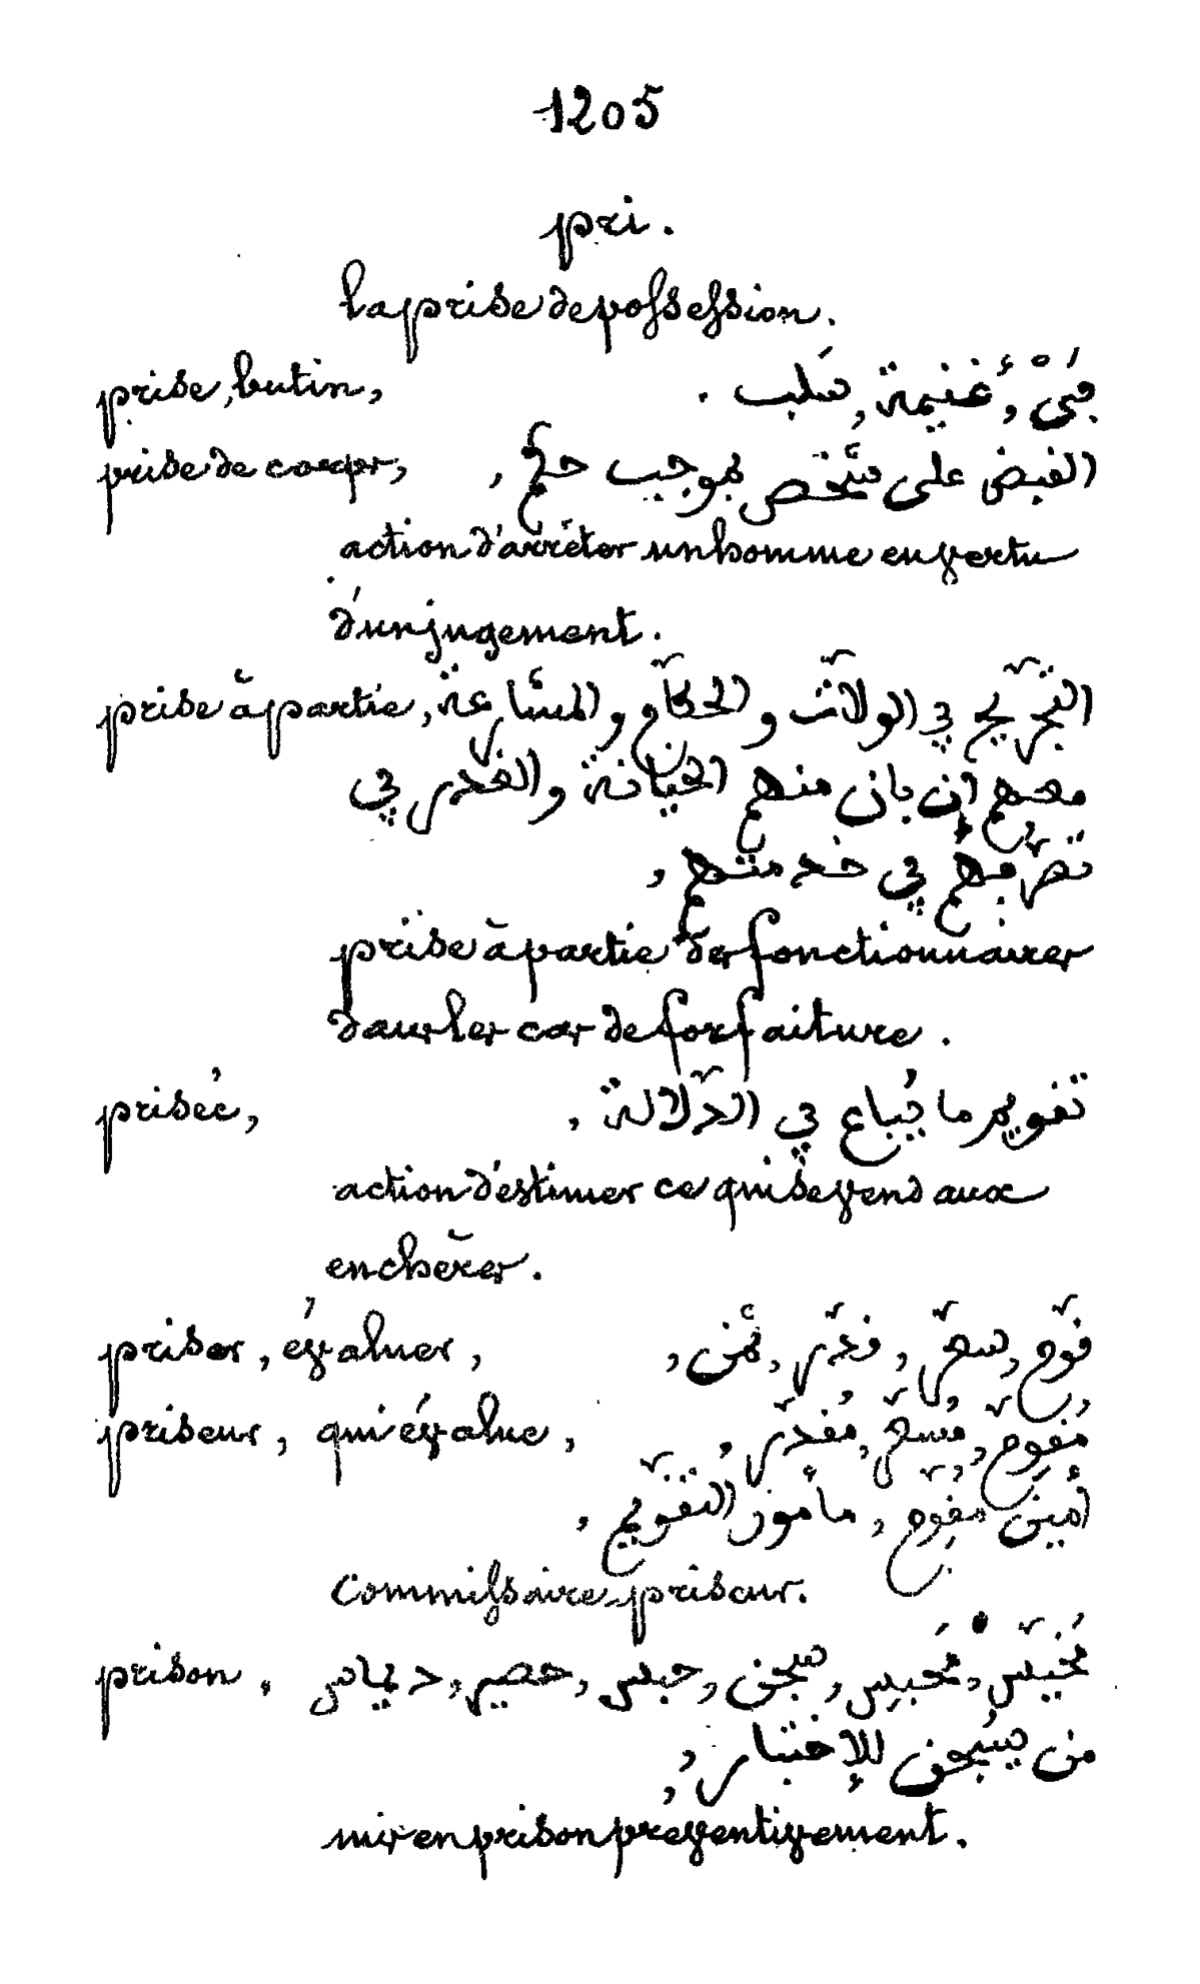 1205
pri.
la prise de possession.
prise, butin, فَيْءٌ, غنيمة, سَلب.
prise de corps, القبض على شخص بموجب حكم,
action d'arrêter un homme en vertu
d'un jugement.
prise à partie, التجريح في الولاة والحكّام والمشارعة
معهم إن بان منهم الخيانة والغدر في
تصرّفهم في خدمتهم,
prise à partie des fonctionnaires
dans les cas de forfaiture.
prisée, تقويم ما يُباع في الدّلالة,
action d'estimer ce qui se vend aux
enchères.
priser, évaluer, قوّم, سعّر, قدّر, ثمّن,
priseur, qui évalue, مُقوِّم, مُسعّر, مُقدّر,
أمين مقوّم, مأمور التقويم,
commissaire-priseur.
prison, مُخيّس, مَحبس, سجن, حبس, حصير, ديماس
من يُسجن للإختبار,
mis en prison préventivement.